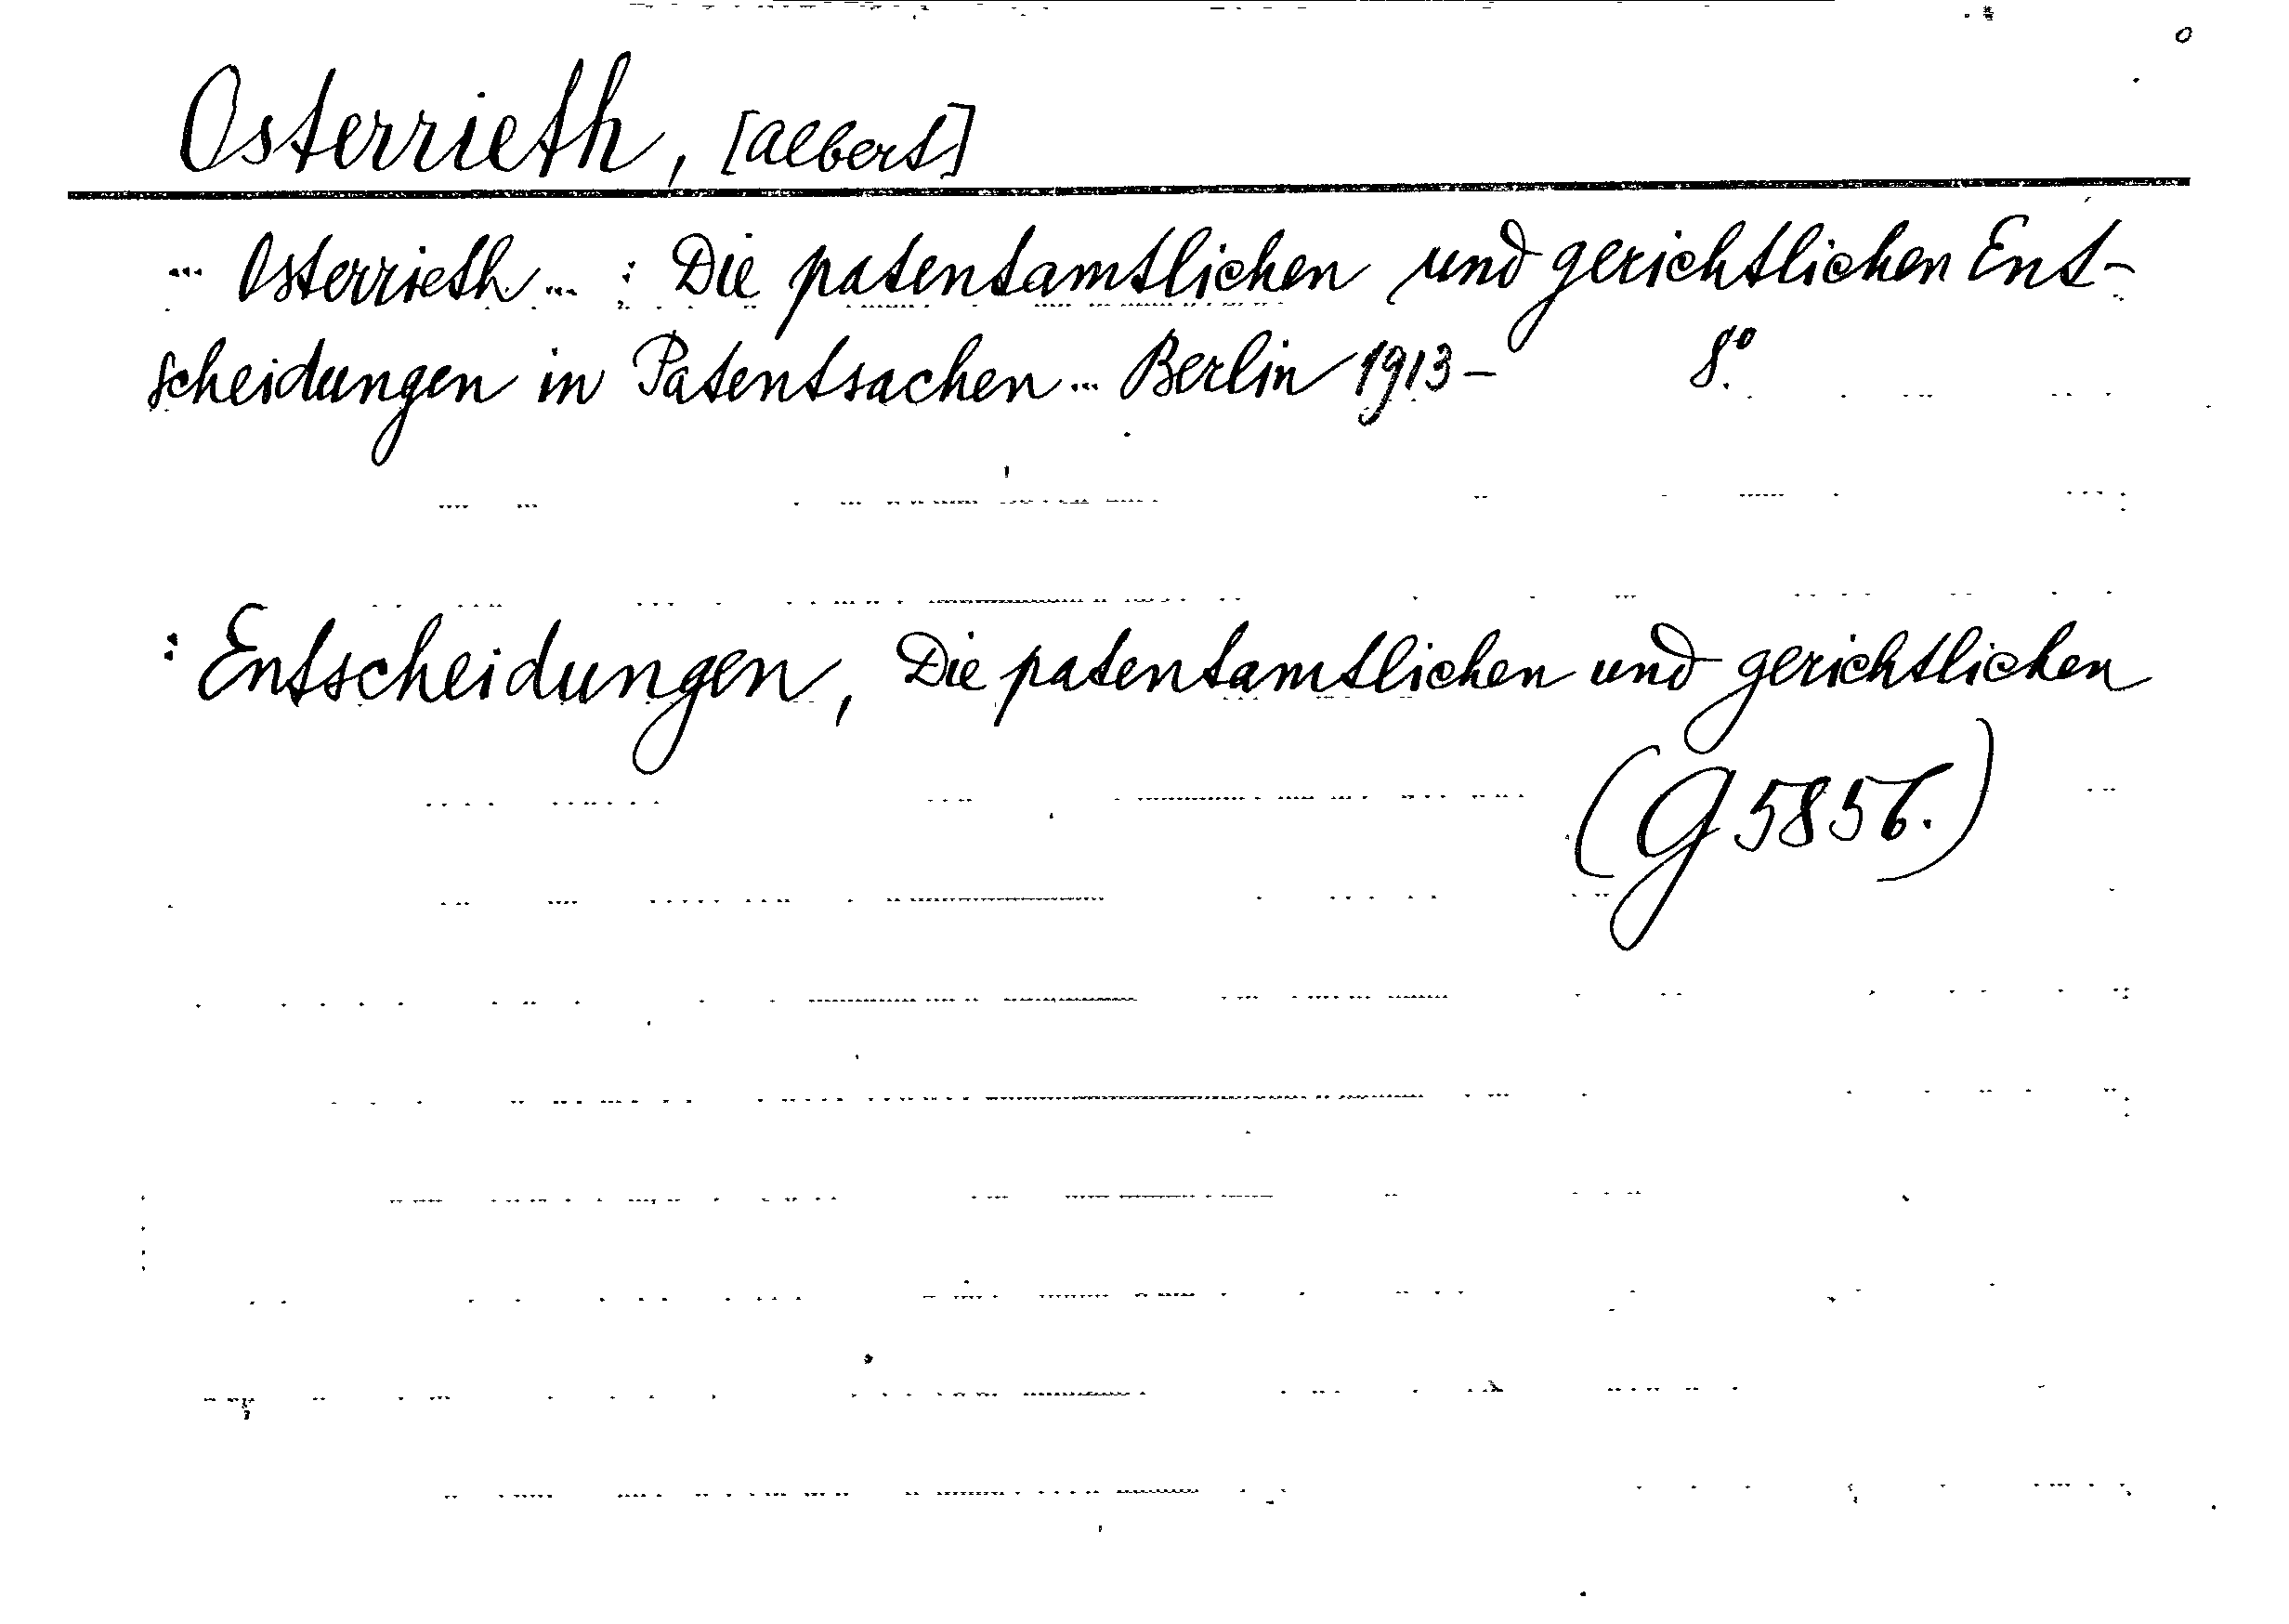 Osterrieth, [Albert]
... Osterrieth ... : Die patentamtlichen und gerichtlichen Ent-
scheidungen in Patentsachen ... Berlin 1913- 8°.
: Entscheidungen, Die patentamtlichen und gerichtlichen
(G 5856.)